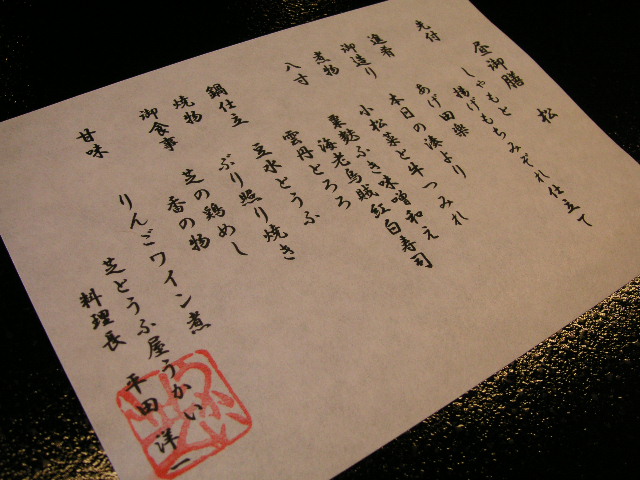 昼御膳　松
先付　あげ田楽
進肴　しゃもと
揚げもちみぞれ仕立て
御造り　本日の湊より
煮物　小松菜と牛つみれ
八寸　粟麩ふき味噌和え
海老烏賊紅白寿司
雲丹とろろ
鍋仕立　豆水とうふ
焼物　ぶり照り焼き
御食事　芝の鶏めし
香の物
甘味　りんごワイン煮
芝とうふ屋うかい
料理長　平田洋一